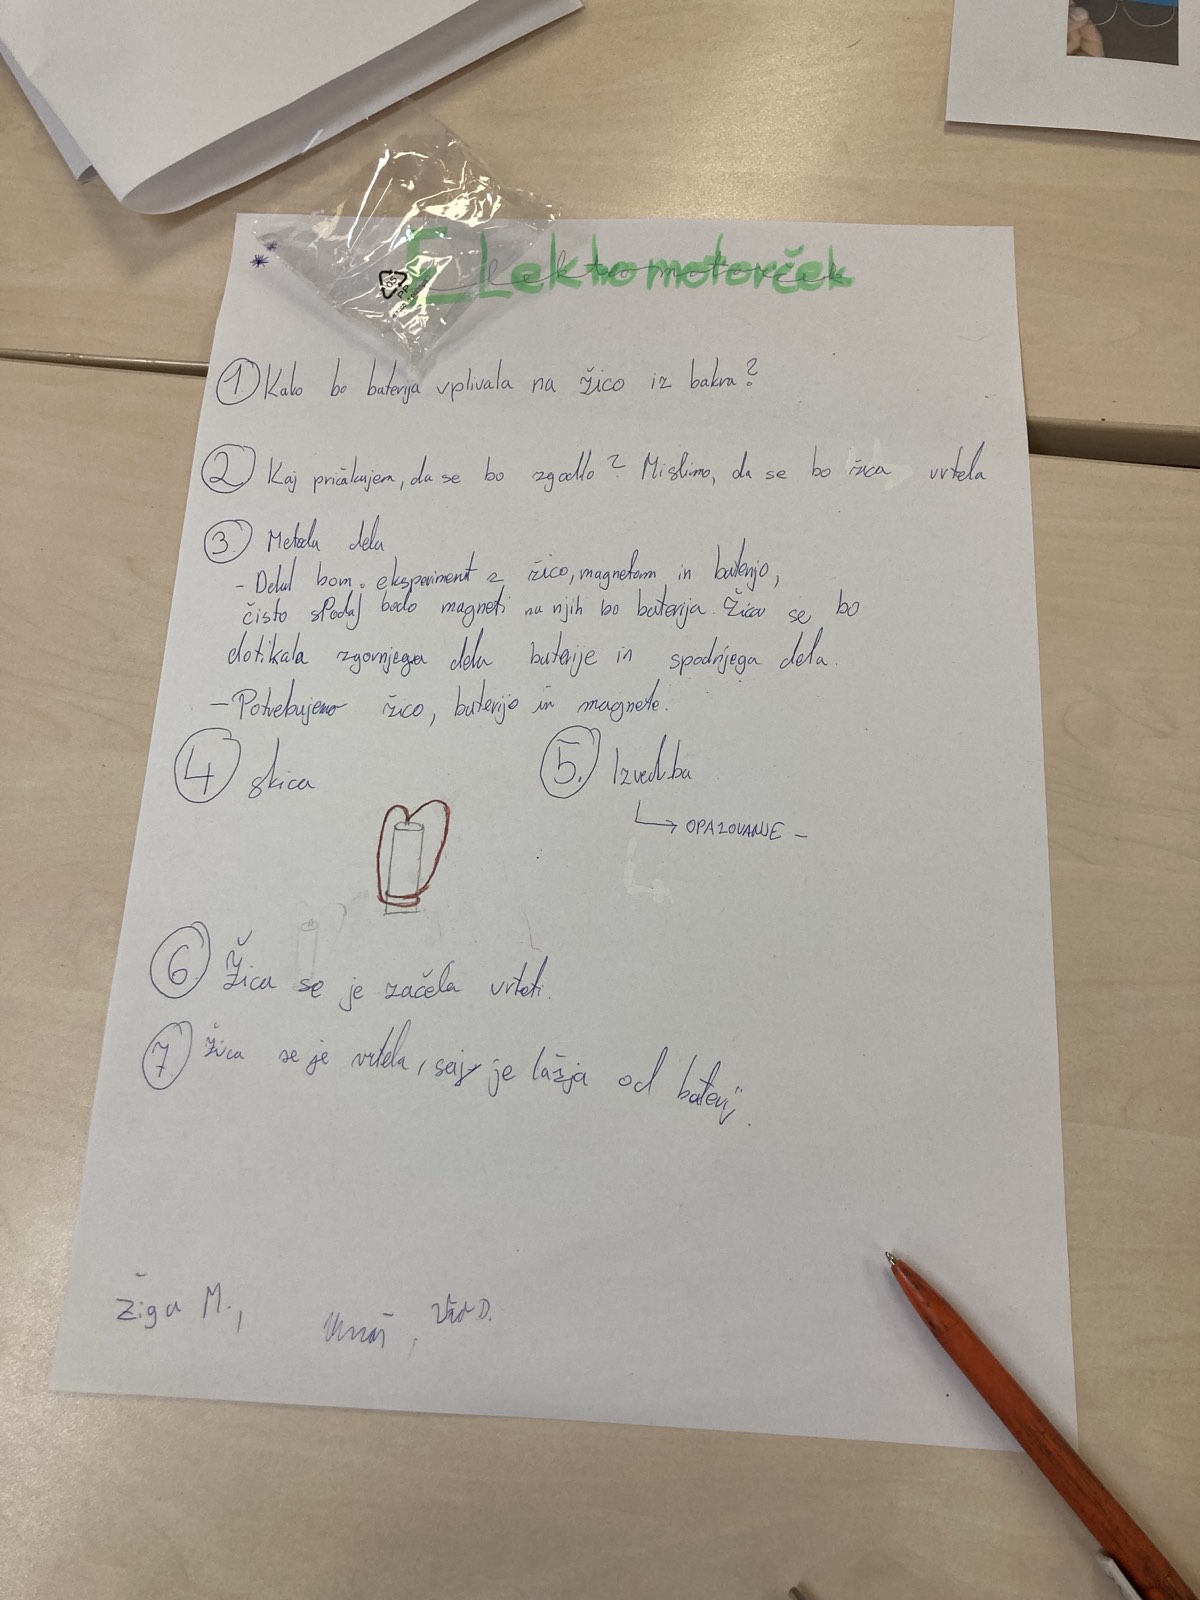 Elektromotorček
1 Kako bo baterija vplivala na žico iz bakra?
2 Kaj pričakujem, da se bo zgodilo? Mislimo, da se bo žica vrtela
3. Metoda dela
- Delal bom eksperiment z žico, magnetom in baterijo,
čisto spodaj bodo magneti na njih bo baterija. Žica se bo
dotikala zgornjega dela baterije in spodnjega dela.
- Potrebujemo žico, baterijo in magnete.
4 skica
5. Izvedba
OPAZOVANJE -
6. Žica se je začela vrteti.
7. Žica se je vrtela, saj je lažja od baterij.
Žiga M., , Vid D.